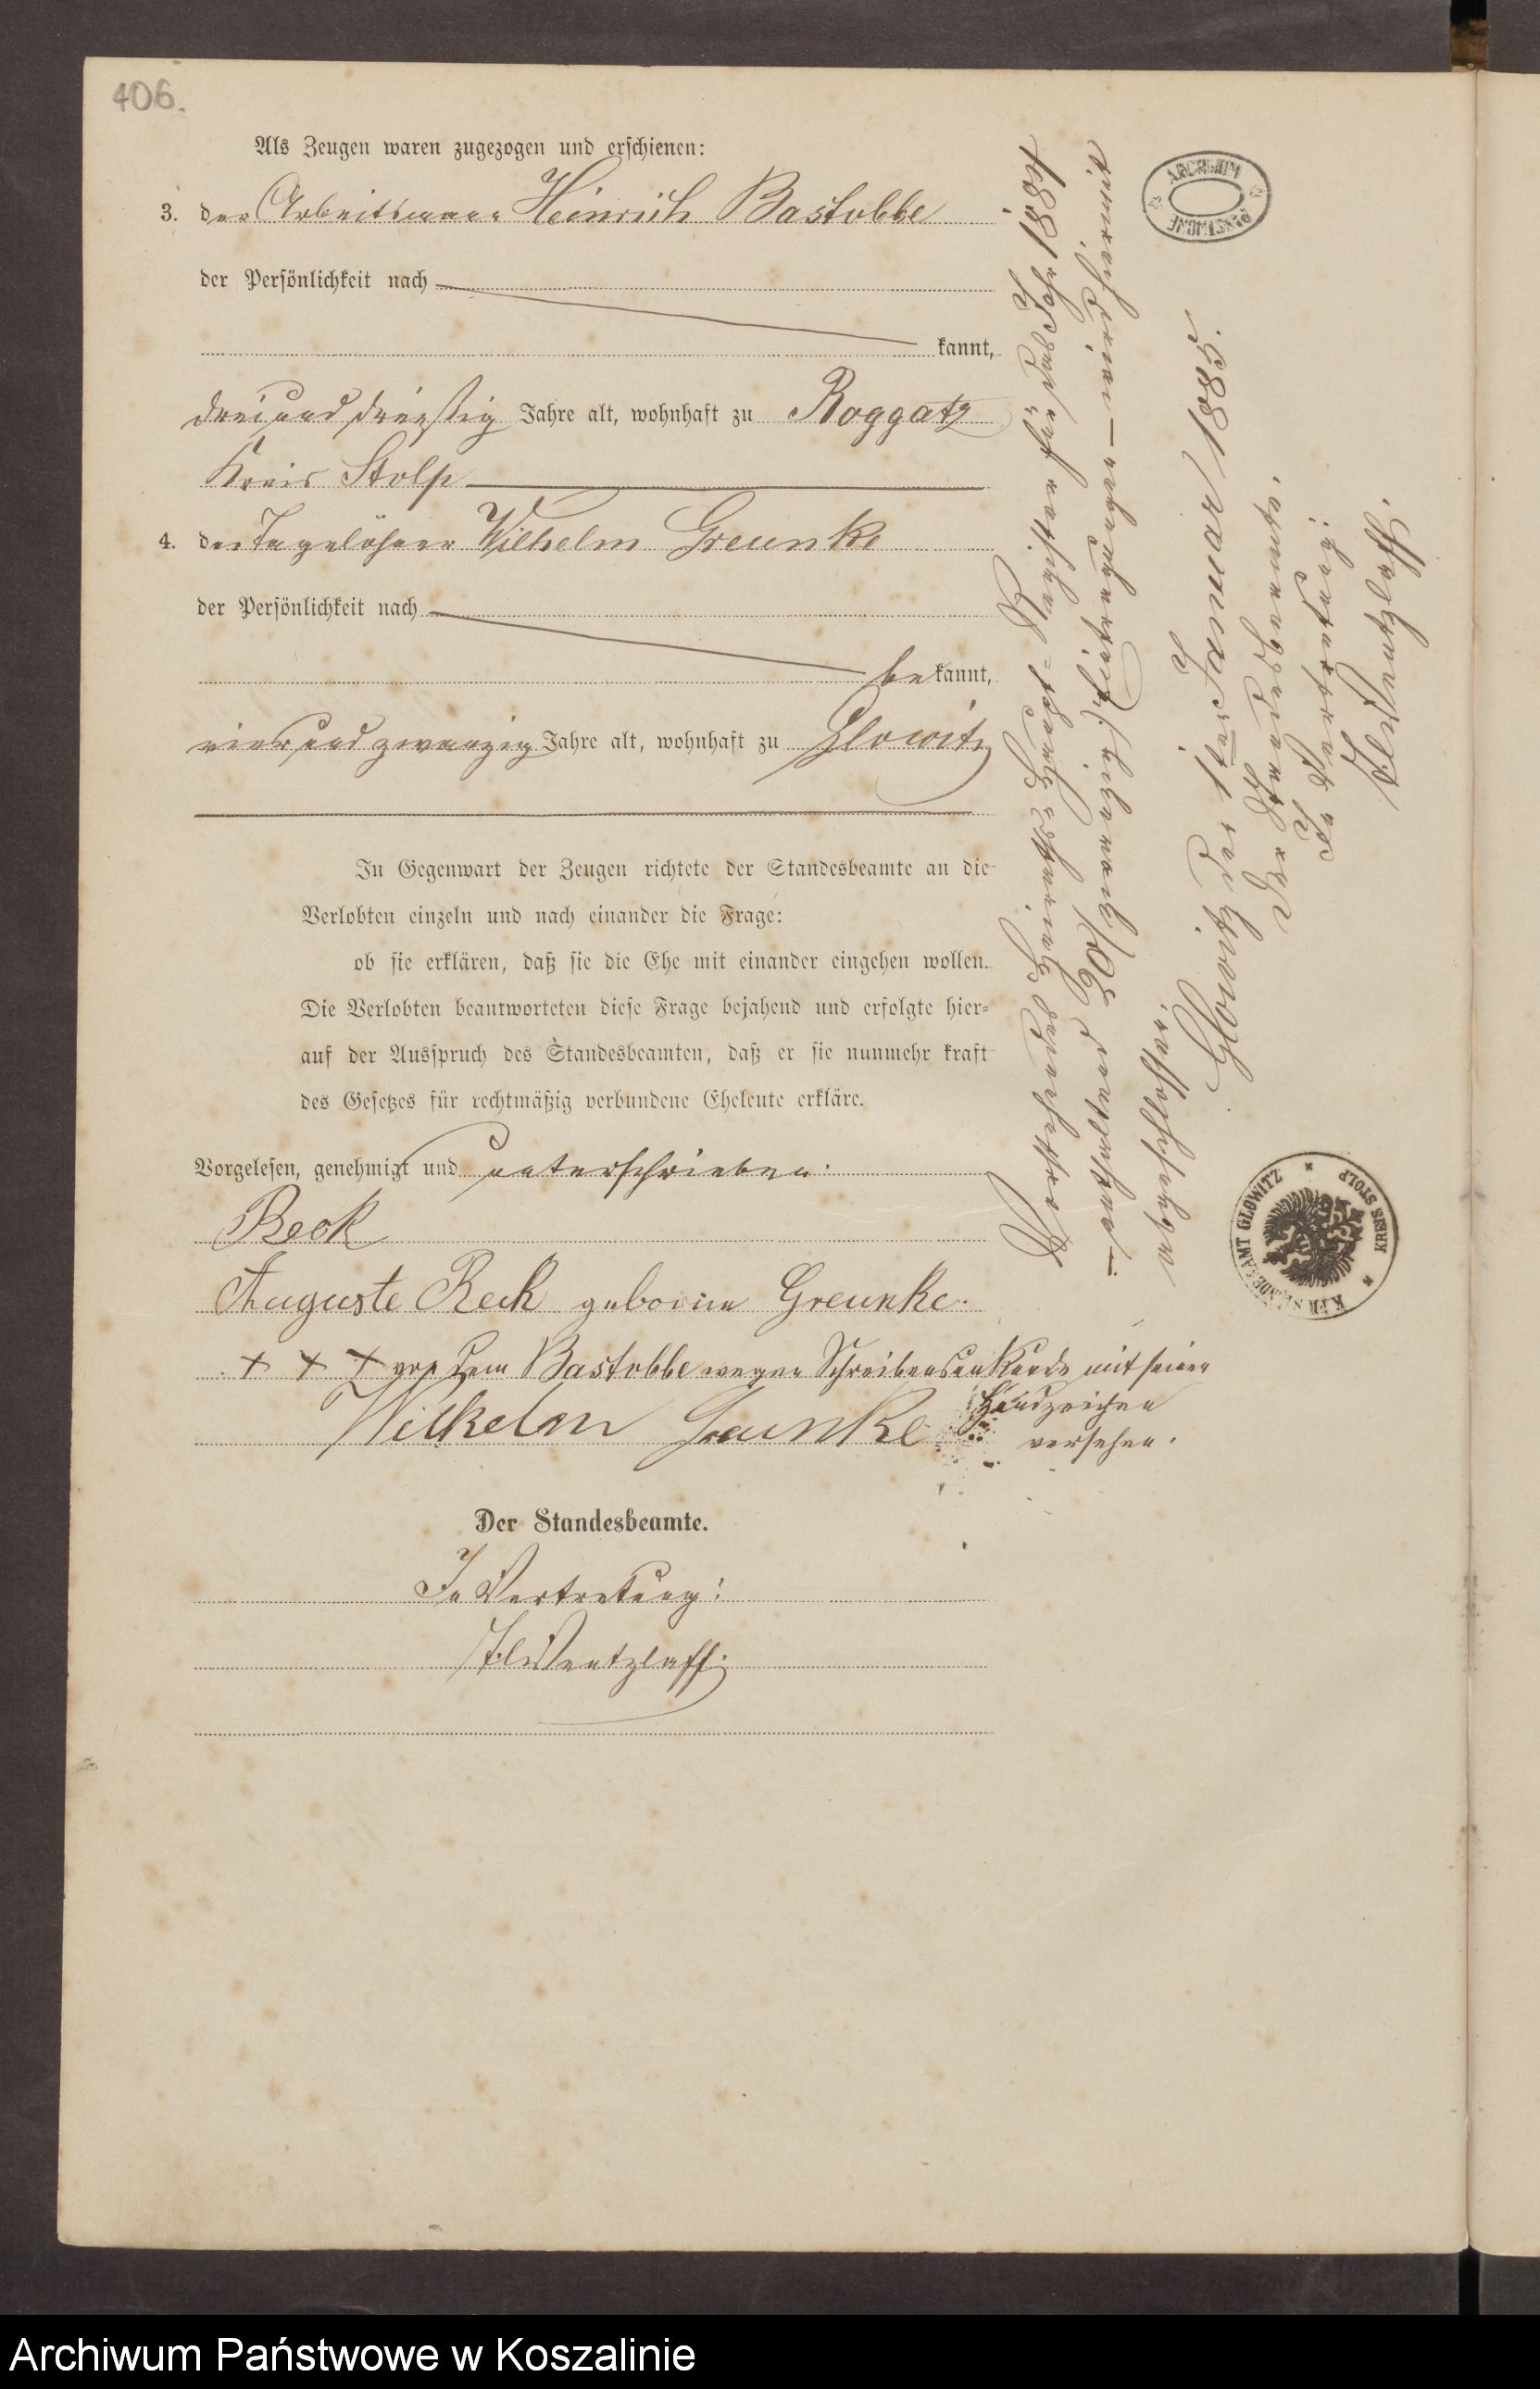 406.
Als Zeugen waren zugezogen und erschienen:
3. der Arbeitsmann Heinrich Bastubbe
der Persönlichkeit nach
kannt,
drei und dreißig Jahre alt, wohnhaft zu Roggatz
Kreis Stolp
4. der Tagelöhner Wilhelm Greunke
der Persönlichkeit nach
be kannt,
vier und zwanzig Jahre alt, wohnhaft zu Glowitz
In Gegenwart der Zeugen richtete der Standesbeamte an die
Verlobten einzeln und nach einander die Frage:
ob sie erklären, daß sie die Ehe mit einander eingehen wollen.
Die Verlobten beantworteten diese Frage bejahend und erfolgte hier=
auf der Ausspruch des Standesbeamten, daß er sie nunmehr kraft
des Gesetzes für rechtmäßig verbundene Eheleute erkläre.
Vorgelesen, genehmigt und unterschrieben.
Reck
Auguste Reck geborene Greunke.
+ + + von dem Bastubbe wegen Schreibensunkunde mit seinen
Handzeichen
versehen.
Wilhelm Greunke
Der Standesbeamte.
In Vertretung:
Wentzlaff.
Vorstehendes Heiraths-Haupt-Register für das Jahr 1884.
enthaltend 26, (zwanzig sechs) Eintragungen — wird hiermit
abgeschlossen.
Glowitz den 1ten Januar 1885.
Der Standesbeamte.
In Vertretung:
Wentzlaff.
ARCHIWUM
PAŃSTWOWE
KPR. STANDESAMT GLOWITZ
KREIS STOLP
Archiwum Państwowe w Koszalinie